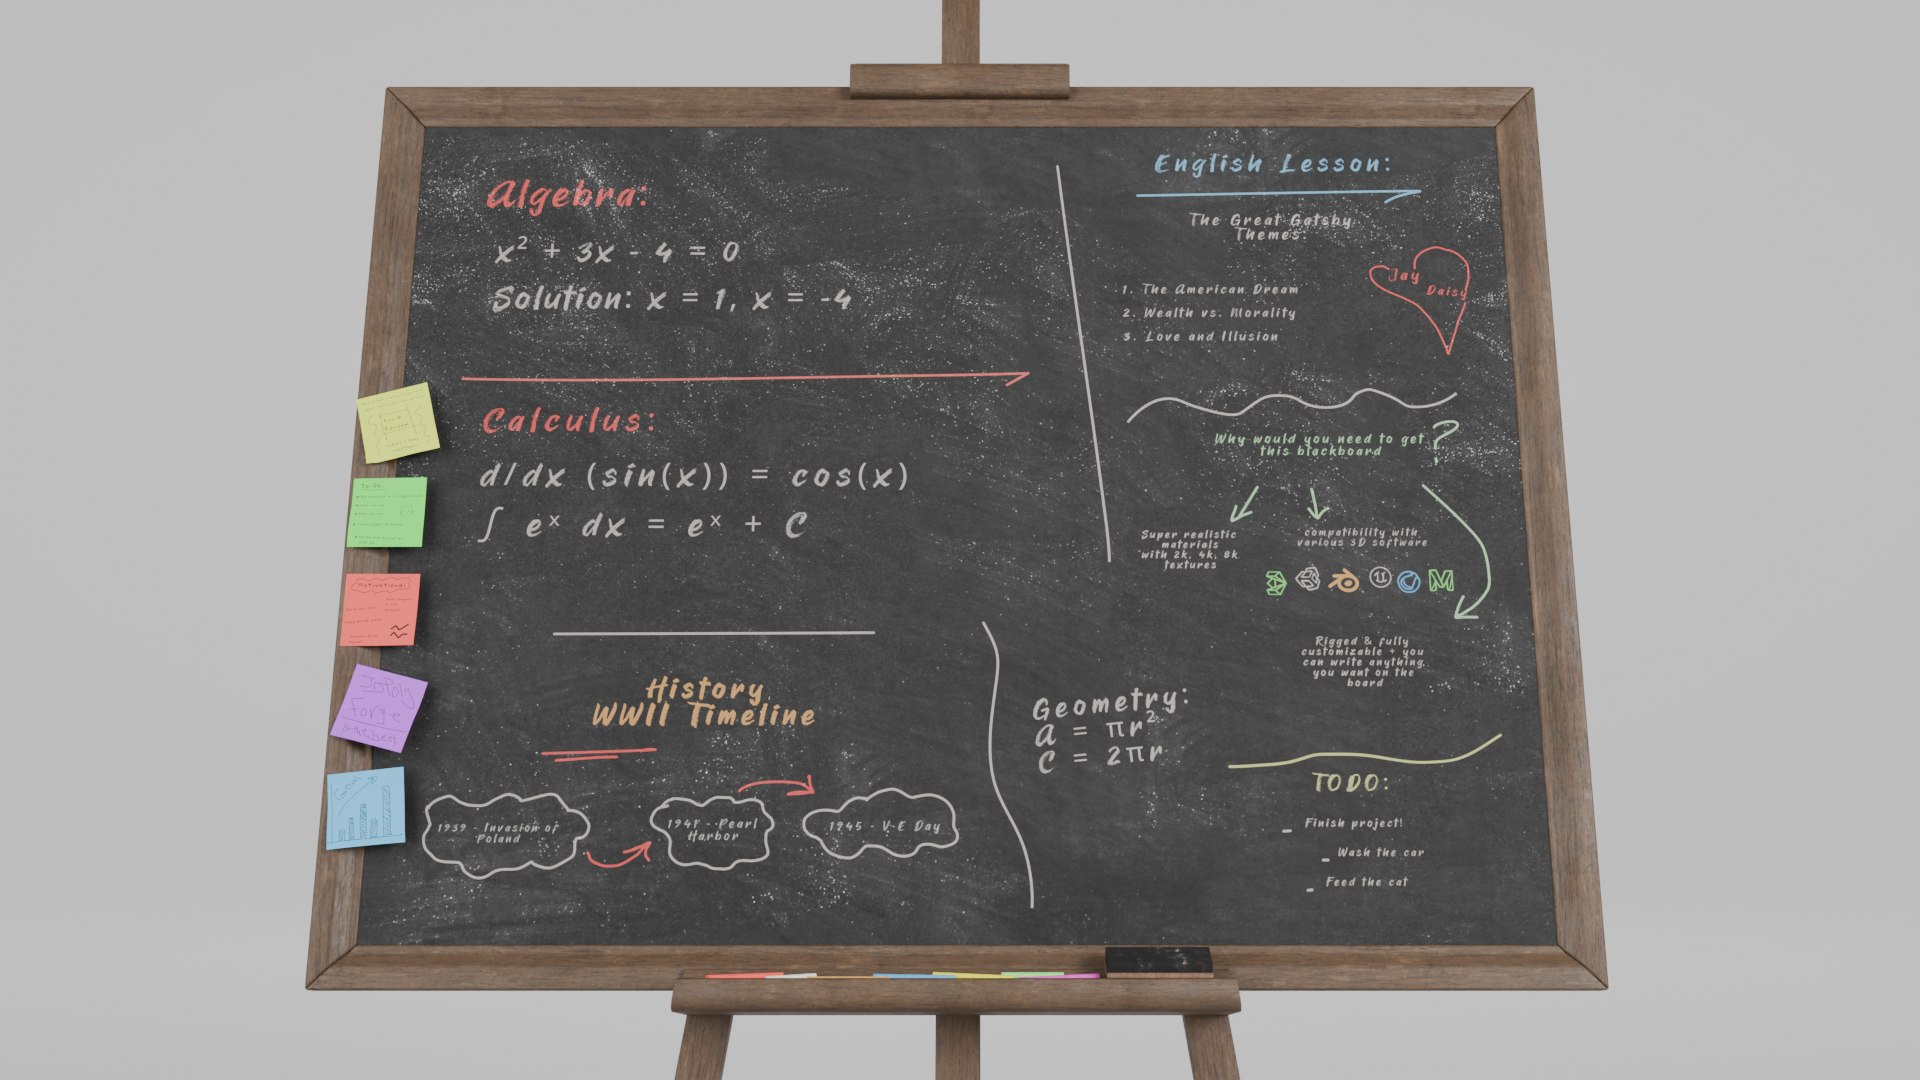 Algebra:
x² + 3x - 4 = 0
Solution: x = 1, x = -4
Calculus:
d/dx (sin(x)) = cos(x)
∫ eˣ dx = eˣ + C
History
WWII Timeline
1939 - Invasion of
Poland
1941 - Pearl
Harbor
1945 - V-E Day
English Lesson:
The Great Gatsby
Themes:
1. The American Dream
2. Wealth vs. Morality
3. Love and Illusion
Jay
Daisy
Why would you need to get
this blackboard
?
Super realistic
materials
with 2k, 4k, 8k
textures
compatibility with
various 3D software
Rigged & fully
customizable + you
can write anything
you want on the
board
Geometry:
A = πr²
C = 2πr
TODO:
- Finish project!
- Wash the car
- Feed the cat
To-Do:
Motivational
3DPoly
Forge
is the best